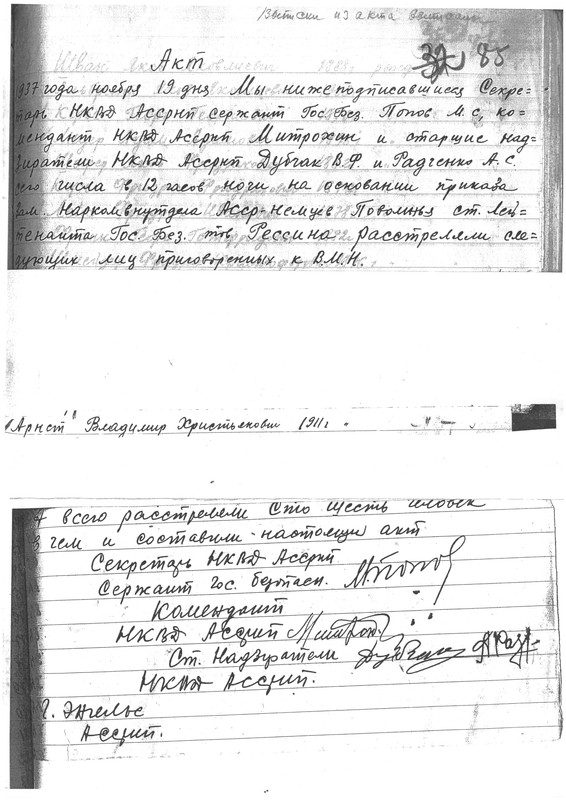 Выписки из акта
Акт
32 85
1937 года ноября 19 дня Мы нижеподписавшиеся Секре-
тарь НКВД Ассрнп сержант Гос. Без. Попов М. С, ко-
мендант НКВД Ассрнп Митрохин и старшие над-
зиратели НКВД Ассрнп Дубчак В.Ф. и Радченко А. С.
сего числа в 12 часов ночи на основании приказа
Зам. Наркомвнутдела Асср-немцев Поволжья ст. Лей-
тенанта Гос. Без. тов Рессина расстреляли сле-
дующих лиц приговоренных к В.М.Н.
"Арнст" Владимир Христьянович 1911 г.
А всего расстреляли Сто шесть человек
в чем и составили настоящий акт
Секретарь НКВД Ассрнп
Сержант Гос. безопасн. МПопов
Комендант
НКВД Ассрнп Митрох
Ст. Надзиратели
НКВД Ассрнп.
Г. Энгельс
Ассрнп.